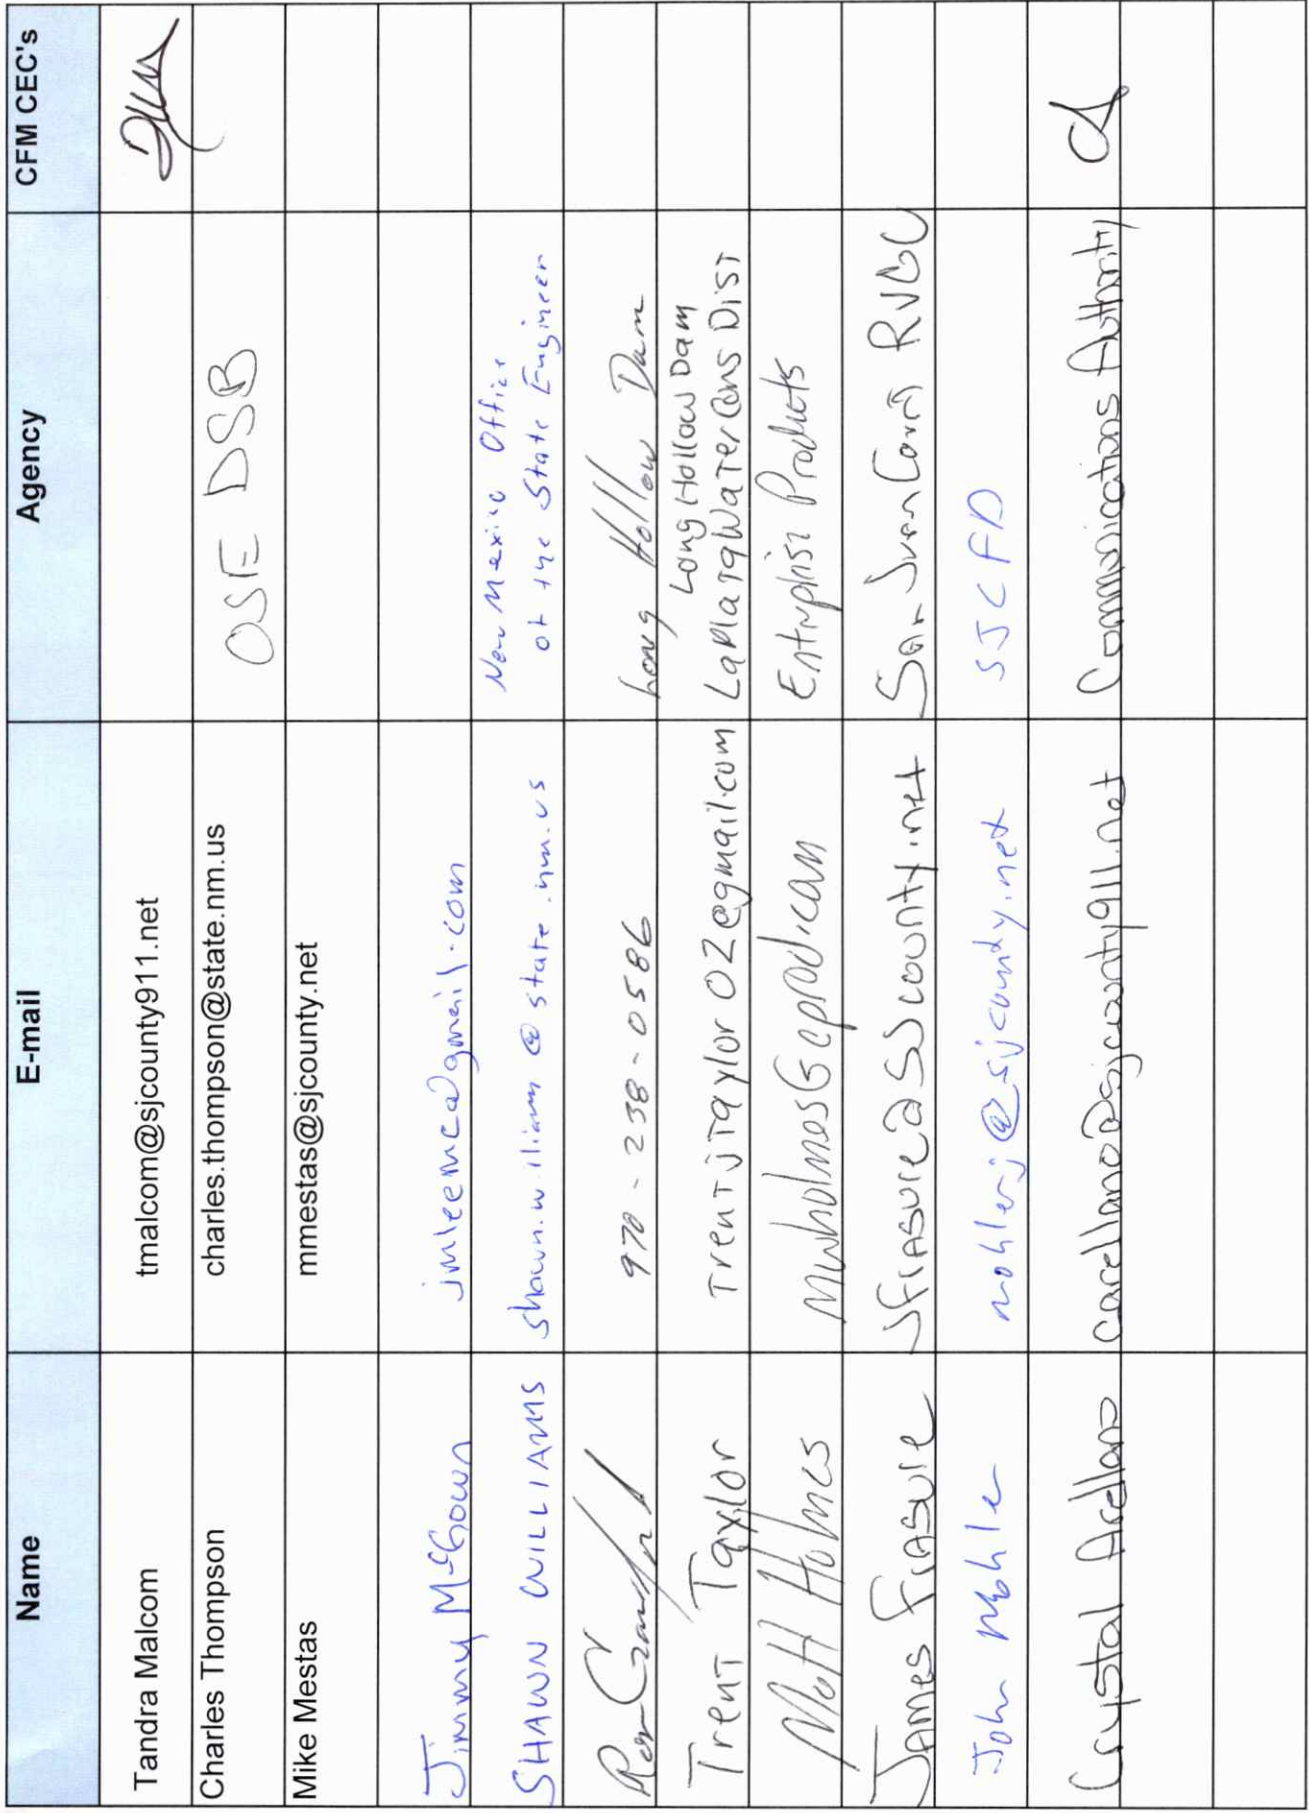 Name E-mail Agency CFM CEC's
Tandra Malcom tmalcom@sjcounty911.net
Charles Thompson charles.thompson@state.nm.us OSE DSB
Mike Mestas mmestas@sjcounty.net
Jimmy McGown jmleemca@gmail.com
New Mexico Office
SHAWN WILLIAMS shawn.william@state.nm.us of the State Engineer
Crawford 970-238-0586 Long Hollow Dam
Long Hollow Dam
Trent Taylor TrentjTaylor02@gmail.com LaPlata Water Cons Dist
Matt Holmes mwholmes@eprod.com Enterprise Products
James Frasure San Juan
John Mohler mohlerj@sjcounty.net SJCFD
Crystal Arellano carellano@sjcounty911.net Communications Authority CA